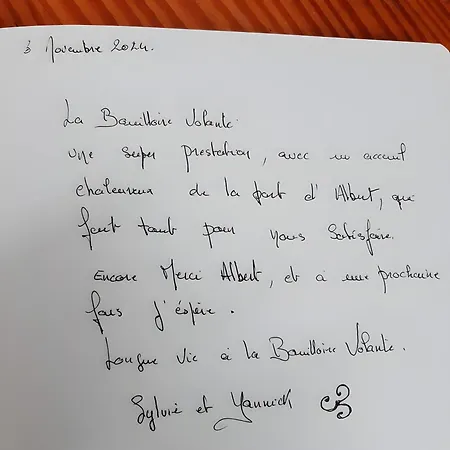 3 Novembre 2024.
La Bouilloire Volante.
une super prestation, avec un accueil
chaleureux de la part d'Albert, qui
fait tout pour nous satisfaire.
Encore Merci Albert, et à une prochaine
fois j'espère.
Longue vie à la Bouilloire Volante.
Sylvie et Yannick